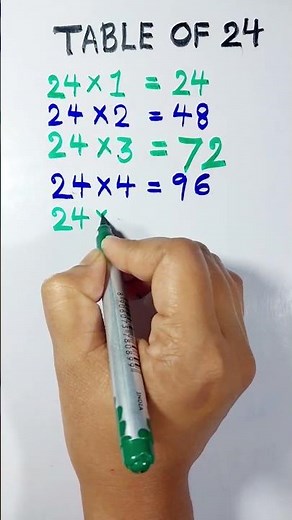 TABLE OF 24
24 × 1 = 24
24 × 2 = 48
24 × 3 = 72
24 × 4 = 96
24 ×